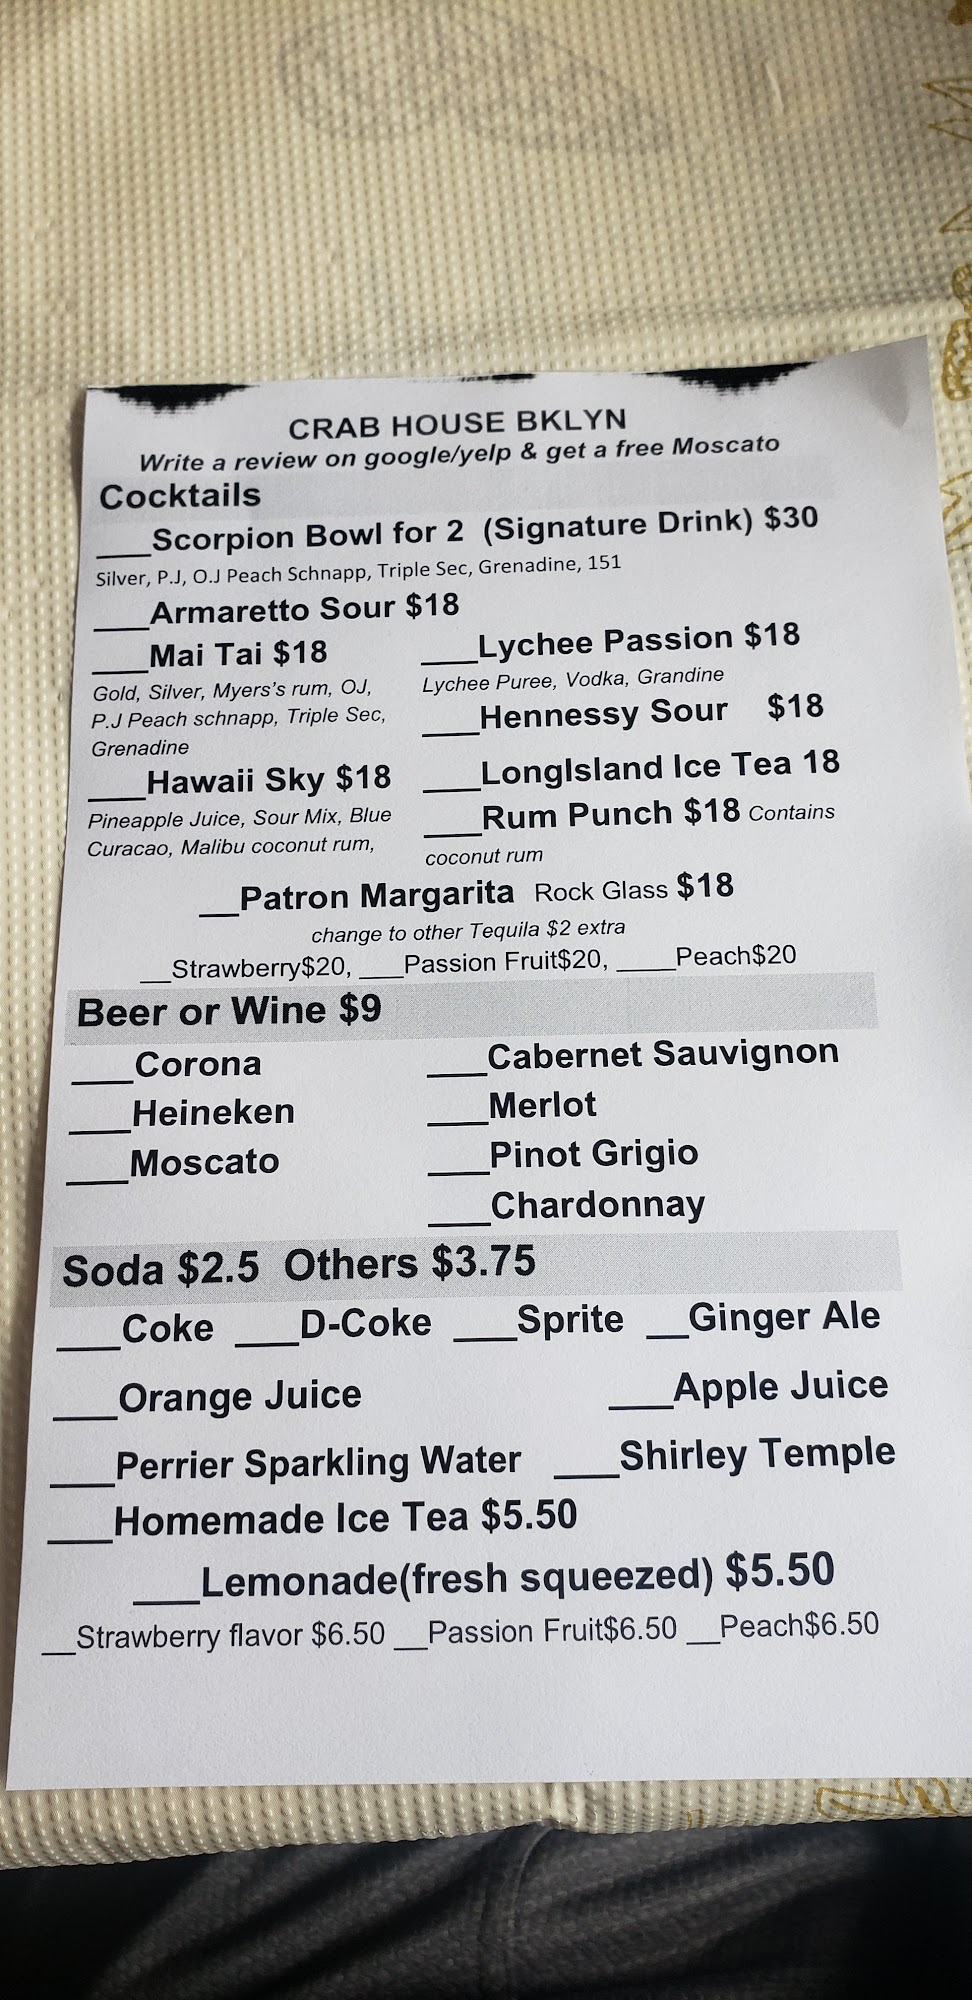 CRAB HOUSE BKLYN
Write a review on google/yelp & get a free Moscato
Cocktails
___Scorpion Bowl for 2 (Signature Drink) $30
Silver, P.J, O.J Peach Schnapp, Triple Sec, Grenadine, 151
___Armaretto Sour $18
___Mai Tai $18
Gold, Silver, Myers's rum, OJ,
P.J Peach schnapp, Triple Sec,
Grenadine
___Hawaii Sky $18
Pineapple Juice, Sour Mix, Blue
Curacao, Malibu coconut rum,
___Lychee Passion $18
Lychee Puree, Vodka, Grandine
___Hennessy Sour $18
___LongIsland Ice Tea 18
___Rum Punch $18 Contains
coconut rum
__Patron Margarita Rock Glass $18
change to other Tequila $2 extra
__Strawberry$20, ___Passion Fruit$20, ____Peach$20
Beer or Wine $9
___Corona ___Cabernet Sauvignon
___Heineken ___Merlot
___Moscato ___Pinot Grigio
___Chardonnay
Soda $2.5 Others $3.75
___Coke ___D-Coke ___Sprite __Ginger Ale
___Orange Juice ___Apple Juice
___Perrier Sparkling Water ___Shirley Temple
___Homemade Ice Tea $5.50
___Lemonade(fresh squeezed) $5.50
__Strawberry flavor $6.50 __Passion Fruit$6.50 __Peach$6.50